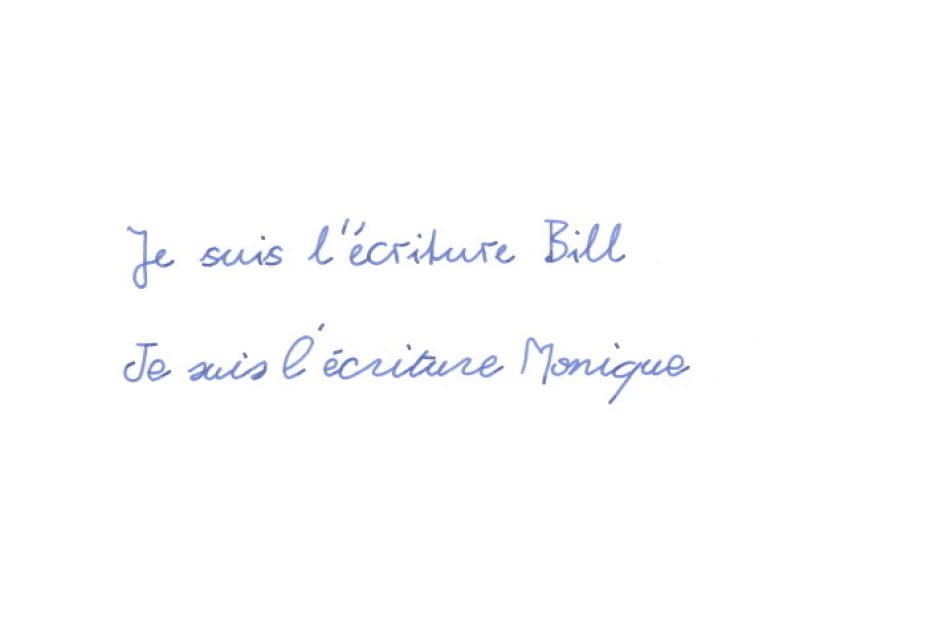 Je suis l'écriture Bill
Je suis l'écriture Monique